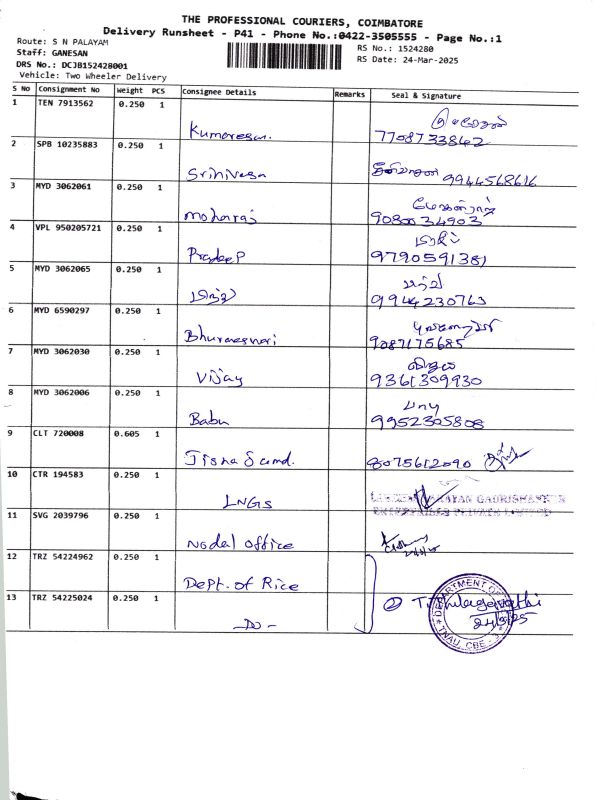 THE PROFESSIONAL COURIERS, COIMBATORE
Delivery Runsheet - P41 - Phone No.:0422-3505555 - Page No.:1
Route: S N PALAYAM
Staff: GANESAN
DRS No.: DCJB152428001
Vehicle: Two Wheeler Delivery
RS No.: 1524280
RS Date: 24-Mar-2025
S No Consignment No Weight PCS Consignee Details Remarks Seal & Signature
1 TEN 7913562 0.250 1
7708733842
2 SPB 10235883 0.250 1
Srinivesa 9944568616
3 MYD 3062061 0.250 1
மோகன்ராஜ்
moharaj 9080034903
4 VPL 950205721 0.250 1
Pradeep 9790591381
5 MYD 3062065 0.250 1
9944230763
6 MYD 6590297 0.250 1
9087175685
7 MYD 3062030 0.250 1
விஜய்
Vijay 9361309930
8 MYD 3062006 0.250 1
பாபு
Babu 9952305808
9 CLT 720008 0.605 1
8075612090
10 CTR 194583 0.250 1
LNGS
11 SVG 2039796 0.250 1
Nodal office
12 TRZ 54224962 0.250 1
Dept. of Rice
13 TRZ 54225024 0.250 1
-Do-
DEPARTMENT OF
24/3/25
TNAU, CBE - 3